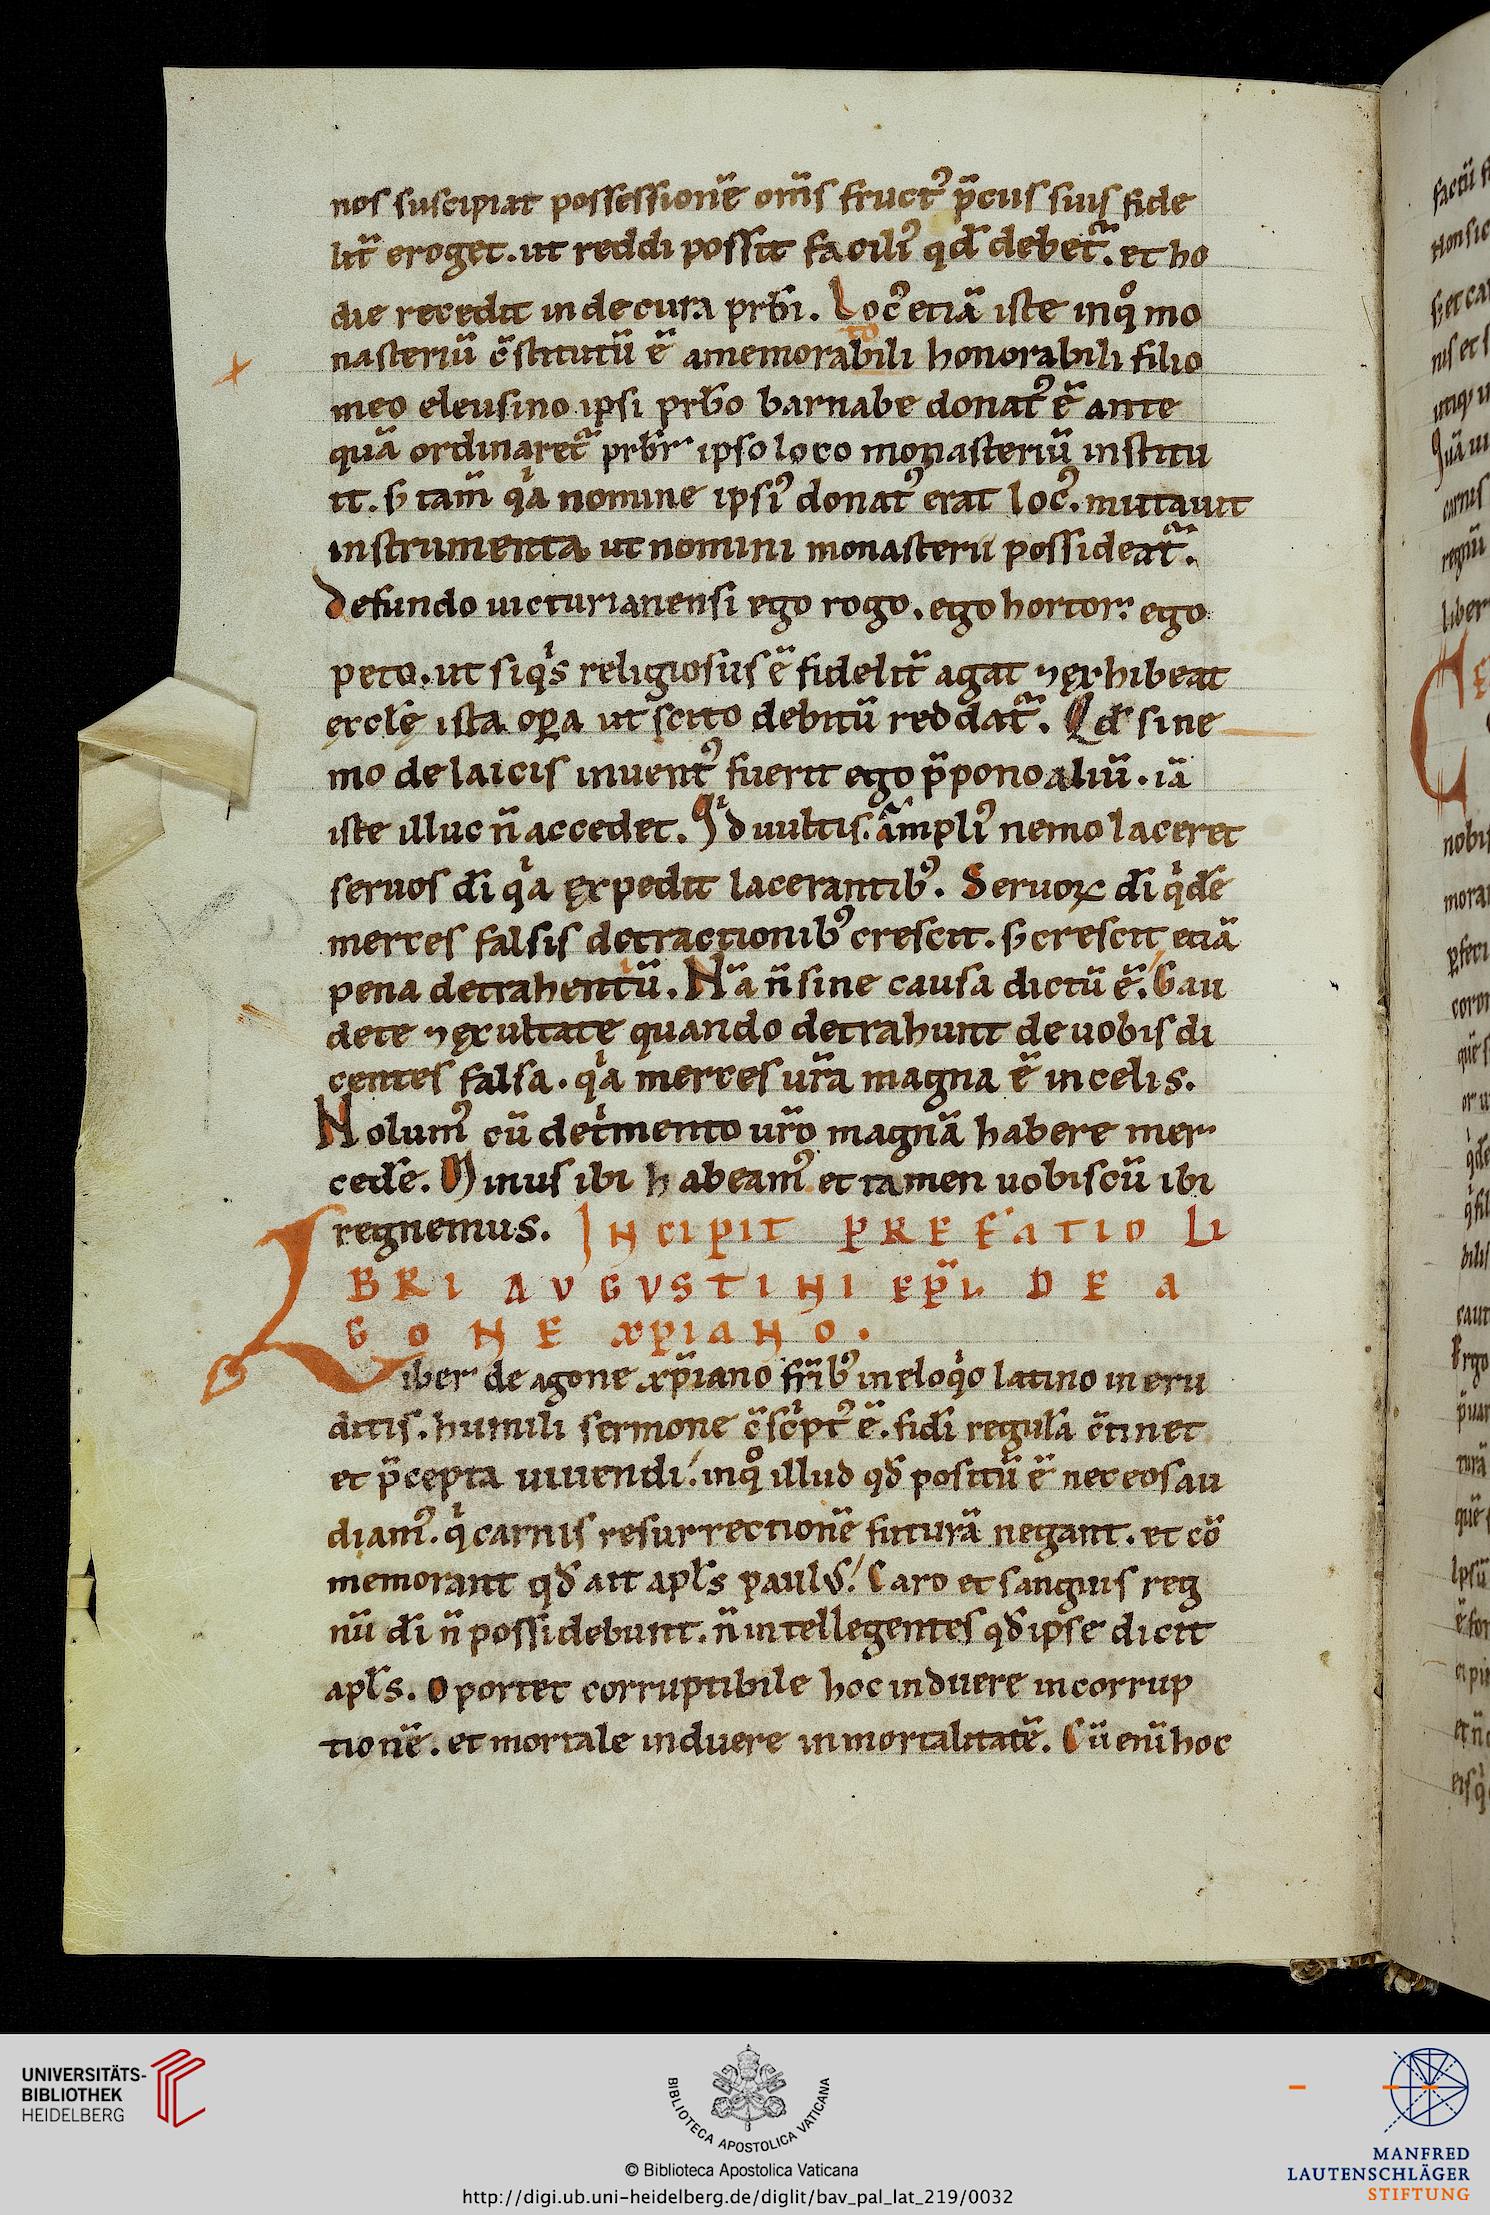 nos suscipiat possessionē om̄s fruct᷒ p̄cus suis fide
lit̄ eroget. ut reddi possit facili᷒ qd̄ debet᷑. et ho
die recedit inde cura prb̄i. Loc᷒ etiā iste inqͦ mo
nasteriū c̄stitutū ē amemorabili honorabili filio
to
meo eleusino ipsi prb̄o barnabe donat᷒ ē ante
quā ordinaret᷑ prb̄r ipso loco monasteriū institu
it. s; tam̄ qͥa nomine ipsi᷒ donat᷒ erat loc᷒. mutauit
instrumenta ut nomini monasterii possideat᷑.
Defundo uicturianensi ego rogo. ego hortor. ego
peto. ut siqͥs religiosus ē fidelit̄ agat ⁊ęxhibeat
ęccłę ista oꝑa ut scito debitū reddat᷑. Qd̄ sine
mo de laicis inuent᷒ fuerit ego p̄pono aliū. iā
iste illuc n̄ accedet. Qͥd uultis. āmpli᷒ nemo laceret
seruos dī qͥa ęxpedit lacerantib᷒. Seruoꝝ dī qͥdē
merces falsis detractionib᷒ crescit. s; crescit etiā
pena detrahentiū. Nā n̄ sine causa dictū ē. Gau
dete ⁊ęxultate quando detrahunt de uobis di
centes falsa. qͥa merces ur̄a magna ē incelis.
Nolum᷒ cū detͥmento ur̄o magnā habere mer
cedē. Minus ibi habeam᷒ et tamen uobiscū ibi
regnemus. INCIPIT PREFATIO LI
BRI AVGVSTINI EP̄I. DE A
GONE XPIANO.
Liber de agone xp̄iano fr̄ib᷒ ineloqͥo latino ineru
ditis. humili sermone c̄scͥpt᷒ ē. fidī regulā c̄tinet
et p̄cepta uiuendi. inqͦ illud qd̄ positū ē nec eos au
diam᷒. qͥ carnis resurrectionē futurā negant. et cō
memorant qd̄ ait apl̄s paulꝰ. Caro et sanguis reg
nū dī n̄ possidebunt. n̄ intellegentes qd̄ ipse dicit
apl̄s. Oportet corruptibile hoc induere incorrup
tionē. et mortale induere inmortalitatē. Cū enī hoc
UNIVERSITÄTS-
BIBLIOTHEK
HEIDELBERG
BIBLIOTECA APOSTOLICA VATICANA
© Biblioteca Apostolica Vaticana
http://digi.ub.uni-heidelberg.de/diglit/bav_pal_lat_219/0032
MANFRED
LAUTENSCHLÄGER
STIFTUNG